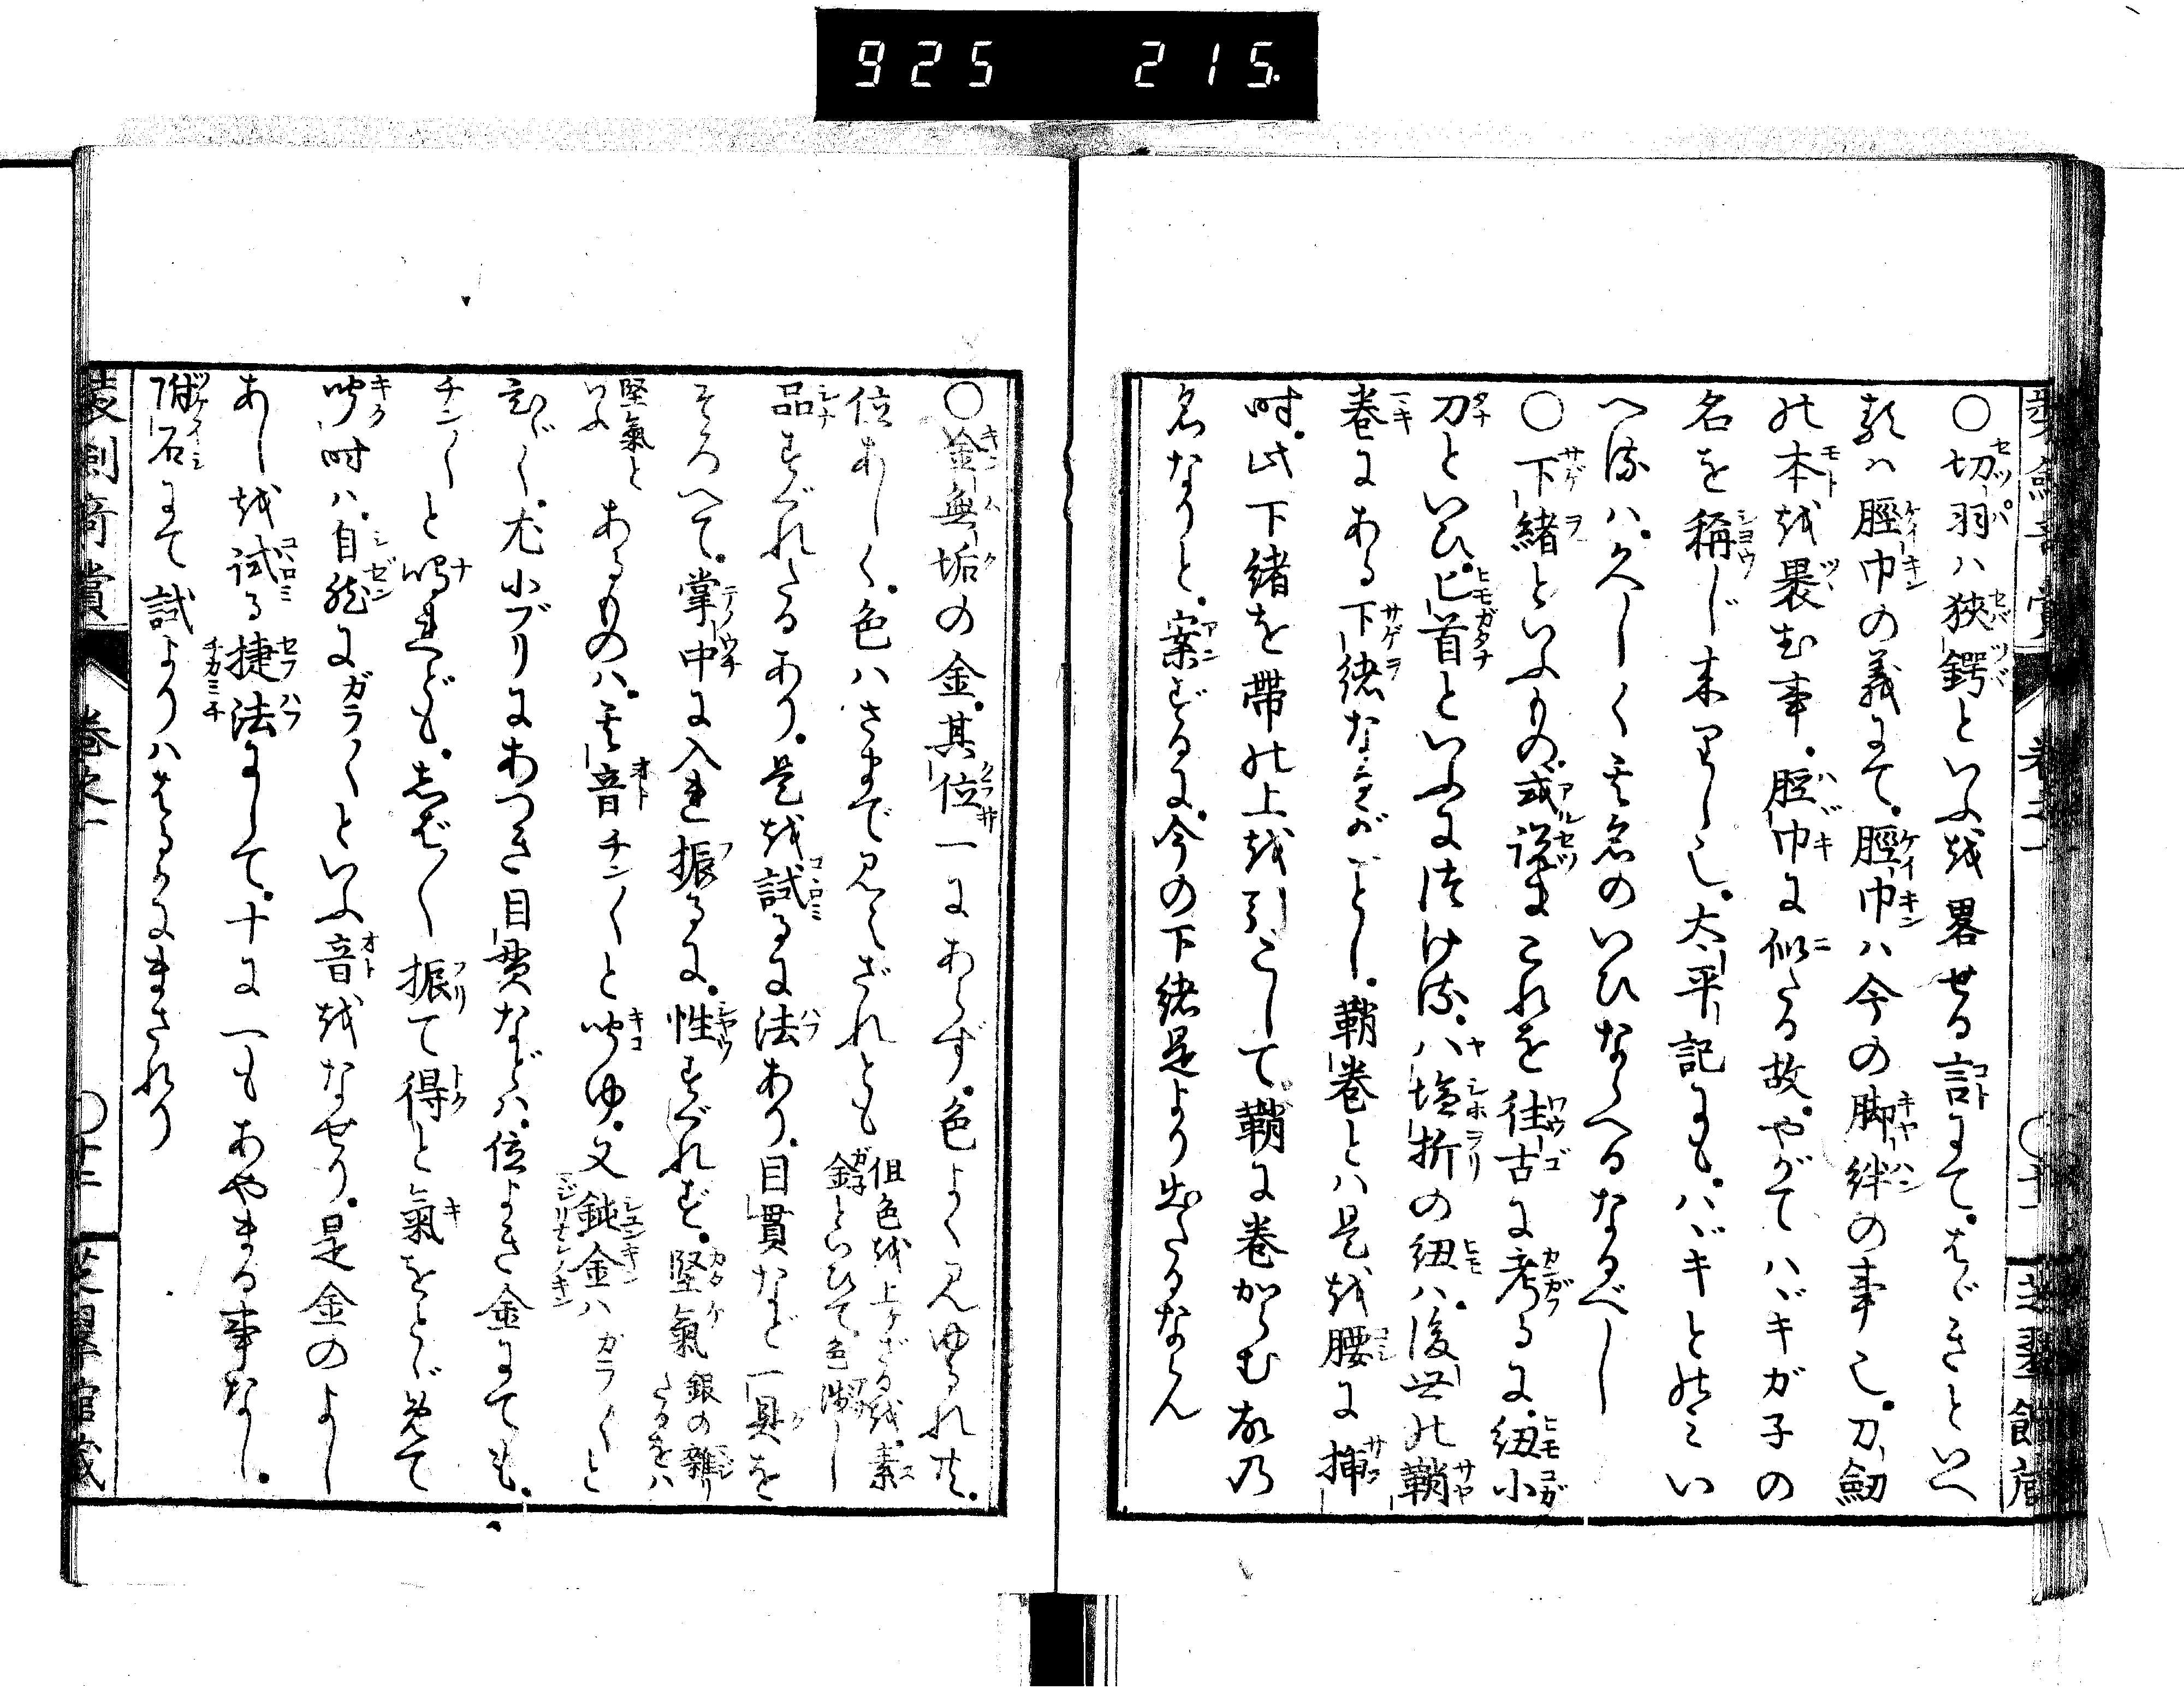 925 215.
〇切羽ハ狹鍔といふ越畧せる言にて。はゞきといへ
るハ脛巾の義にて。脛巾ハ今の脚絆の事也。刀劔
の本越裹む事。脛巾に似たる故。やがてハヾキガ子の
名を稱じ来りし也。太平記にも。ハヾキとのミい
へ流ハ。久しく其名のいひならへるなるべし
〇下緒といふもの。或説にこれを往古に考るに。紐小
刀といひ。匕首といふに法け流。八塩折の紐ハ。後世の鞘
巻にある下緒な流がごとし。鞘巻とハ是越腰に挿
時。此下緒を帶の上越引こして。鞘に巻からむ故乃
名なりと。案ずるに。今の下緒是より出たるならん
〇金無垢の金。其位一にあらず。色よく見ゆれ共。
位あしく。色ハさまで見えざれとも 但色越上ケざる越。素
品すぐれたるあり。是越試るに法あり。目貫など一具を
そろへて。掌中に入連振るに。性すぐれず。堅氣 銀の雜り
たるをハ
堅氣と
いふ あるものハ。其音チン〱と聞ゆ。又鈍金ハガラ〱と
尤小ブリにあつき目貫などハ。位よき金にても。
チン〱と鳴連ども。志ば〱振て得と氣をとゞめて
聞時ハ。自然にガラ〱といふ音越なせり。是金のよし
あし越試る捷法にして。十に一もあやまる事なし。
附石にて試よりハはるかにまされり
裝劍奇賞 巻之一 〇十二 芝翠館藏